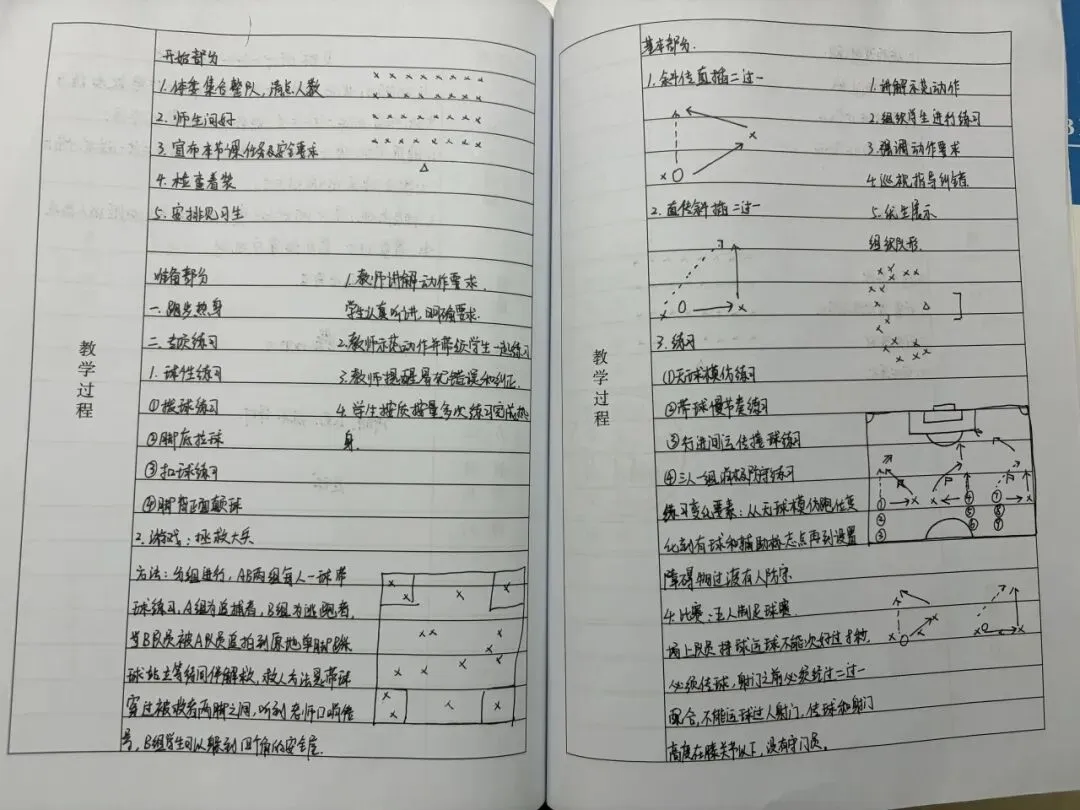 教学过程
开始部分
1. 体委集合整队，清点人数
2. 师生问好
3. 宣布本节课任务及安全要求
4. 检查着装
5. 安排见习生
准备部分
1. 教师讲解动作要求.
一. 跑步热身
学生认真听讲，明确要求.
二. 专项练习
2. 教师示范动作并带领学生一起练习
1. 球性练习
3. 教师提醒易犯错误和纠正.
①拨球练习
4. 学生按质按量多次练习完成热
②脚底拉球
身.
③扣球练习
④脚背正面颠球
2. 游戏：拯救大兵
方法：分组进行，AB两组每人一球带
球练习，A组为追捕者，B组为逃跑者，
当B队员被A队员追拍到原地单脚
球站立等待同伴解救，救人方法是带球
穿过被救者两脚之间，听到老师口哨信
号，B组学生可以躲到四个角的安全屋.
教学过程
基本部分.
1. 斜传直插二过一
1. 讲解示范动作
2. 组织学生进行练习
3. 强调动作要求
4. 巡视指导纠错.
2. 直传斜插二过一
5. 优生展示
组织队形.
3. 练习
①无球模仿练习
②带球慢节奏练习
③行进间运传撞球练习
④三人一组消极防守练习
练习变化要素：从无球模仿跑位变
化到有球和辅助标志点再到设置
障碍物过渡有人防守.
4. 比赛：五人制足球赛.
场上队员持球运球不能次好过8秒，
必须传球，射门之前必须经过二过一
配合，不能运球过人射门，传球和射门
高度在膝关节以下，没有守门员。